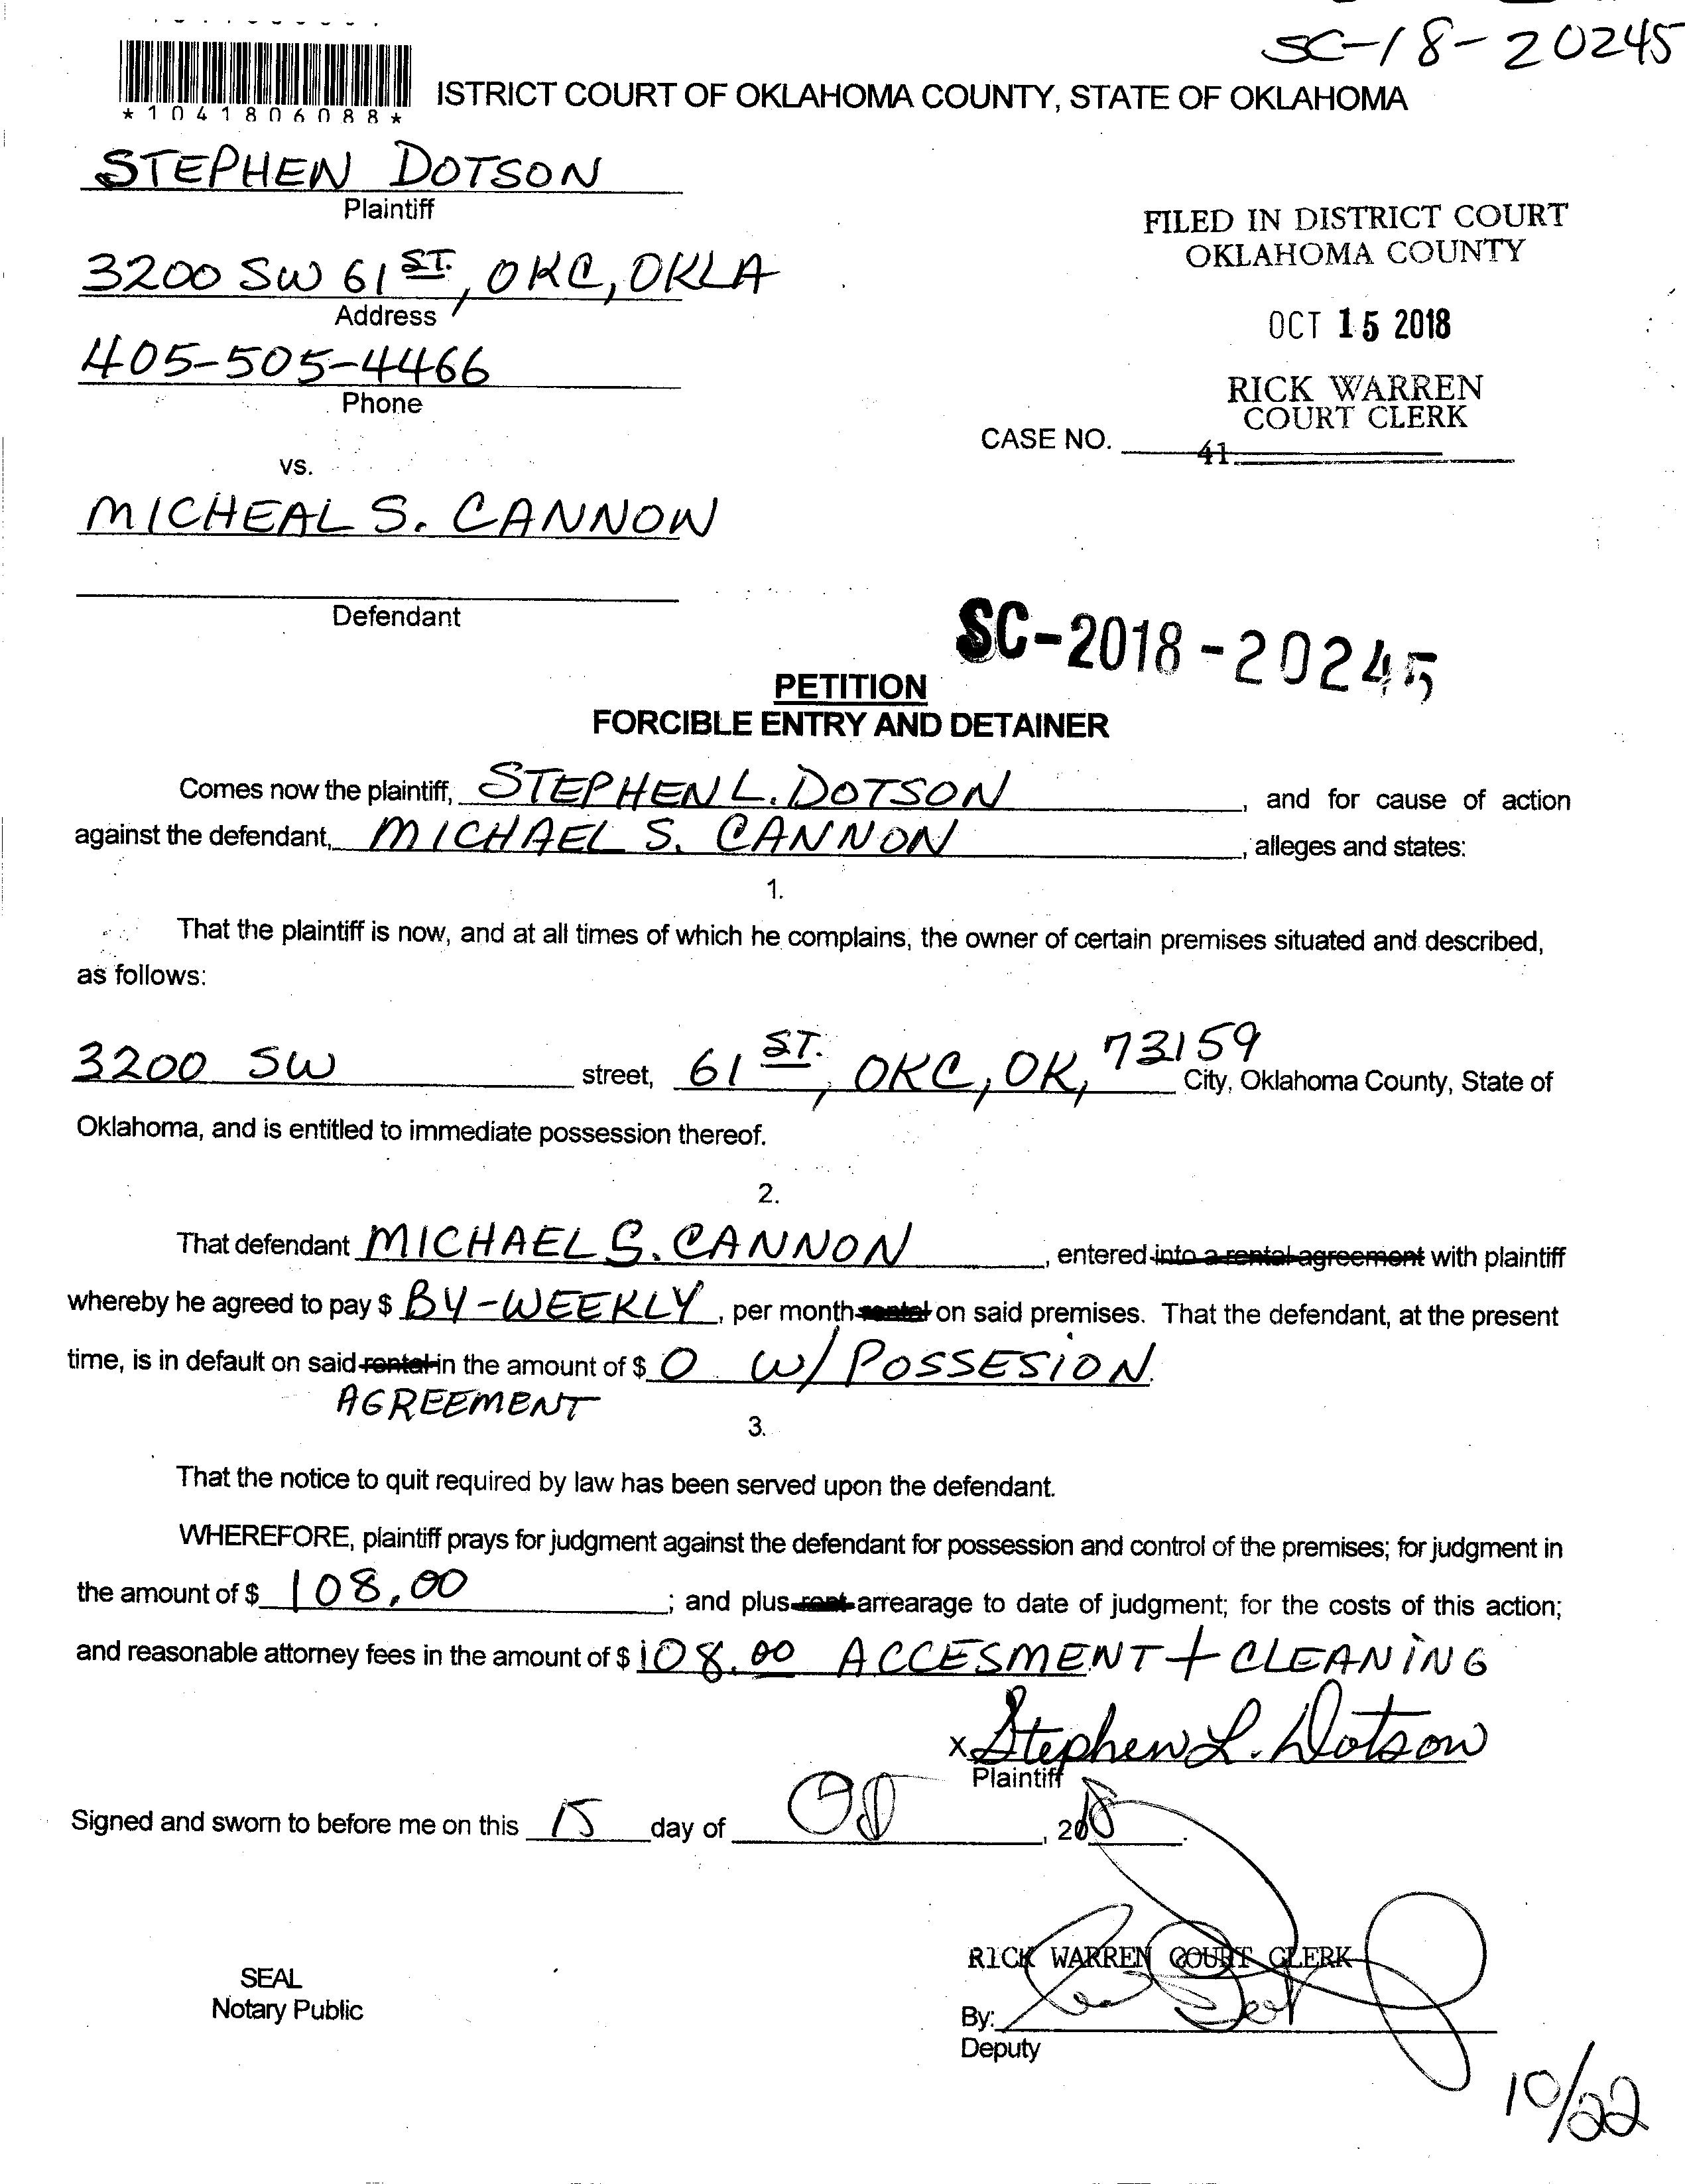 SC-18-20245
*1041806088*
ISTRICT COURT OF OKLAHOMA COUNTY, STATE OF OKLAHOMA
STEPHEN DOTSON
Plaintiff
FILED IN DISTRICT COURT
OKLAHOMA COUNTY
3200 SW 61 ST., OKC, OKLA
Address
OCT 15 2018
405-505-4466
Phone
RICK WARREN
COURT CLERK
CASE NO.
41
vs.
MICHEAL S. CANNON
Defendant
SC-2018-20245
PETITION
FORCIBLE ENTRY AND DETAINER
Comes now the plaintiff, STEPHEN L. DOTSON, and for cause of action
against the defendant, MICHAEL S. CANNON, alleges and states:
1.
That the plaintiff is now, and at all times of which he complains, the owner of certain premises situated and described,
as follows:
3200 SW street, 61 ST., OKC, OK, 73159 City, Oklahoma County, State of
Oklahoma, and is entitled to immediate possession thereof.
2.
That defendant MICHAEL S. CANNON, entered into a rental agreement with plaintiff
whereby he agreed to pay $ BY-WEEKLY, per month rental on said premises. That the defendant, at the present
time, is in default on said rental in the amount of $ 0 W/ POSSESION.
AGREEMENT
3.
That the notice to quit required by law has been served upon the defendant.
WHEREFORE, plaintiff prays for judgment against the defendant for possession and control of the premises; for judgment in
the amount of $ 108.00; and plus rent arrearage to date of judgment; for the costs of this action;
and reasonable attorney fees in the amount of $ 108.00 ACCESMENT + CLEANING
x Stephen L. Dotson
Plaintiff
Signed and sworn to before me on this 15 day of , 2018.
RICK WARREN COURT CLERK
SEAL
Notary Public
By:
Deputy
10/22